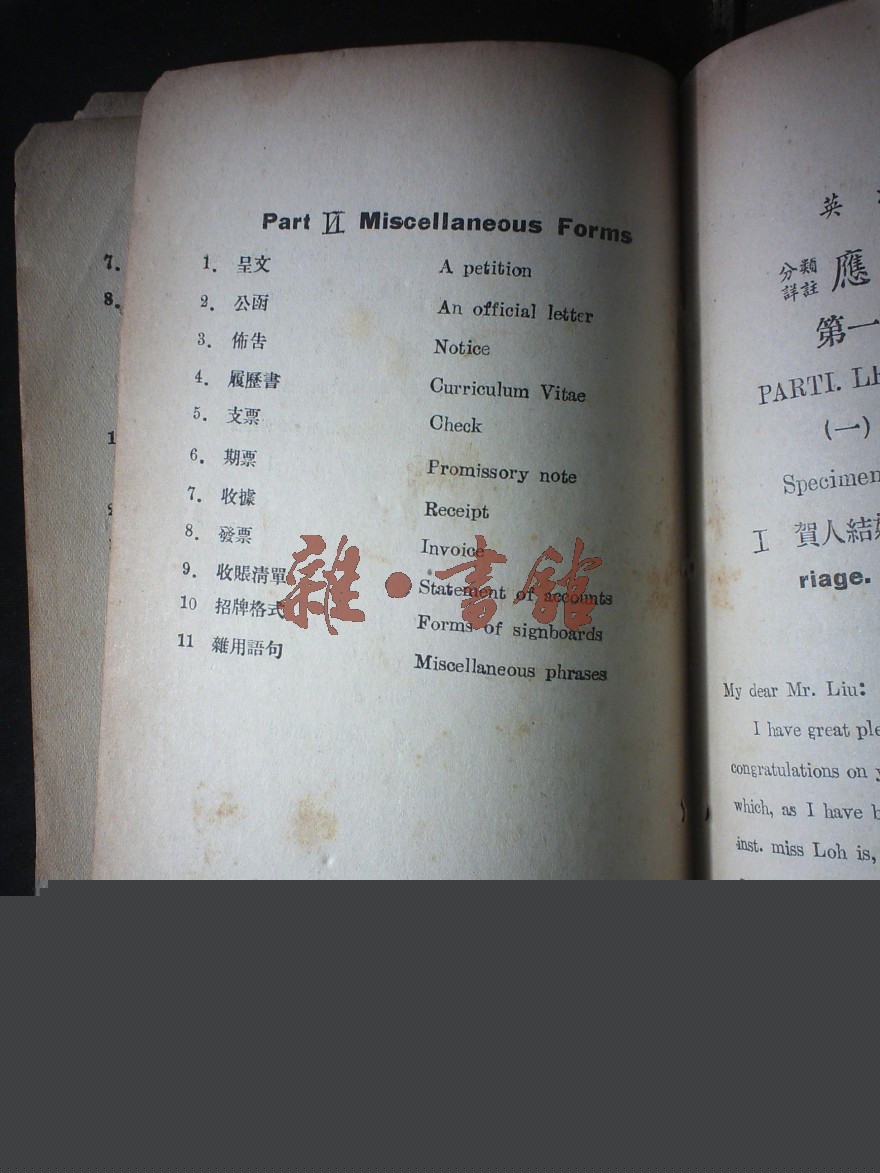 Part VI Miscellaneous Forms
1. 呈文 A petition
2. 公函 An official letter
3. 佈告 Notice
4. 履歷書 Curriculum Vitae
5. 支票 Check
6. 期票 Promissory note
7. 收據 Receipt
8. 發票 Invoice
9. 收賬清單 Statement of accounts
10 招牌格式 Forms of signboards
11 雜用語句 Miscellaneous phrases
雜·書館
7.
8.
1
英
分類
詳註 應
第一
PARTI. LE
(一)
Specimen
I 賀人結
riage.
My dear Mr. Liu:
I have great ple
congratulations on y
which, as I have b
inst. miss Loh is,